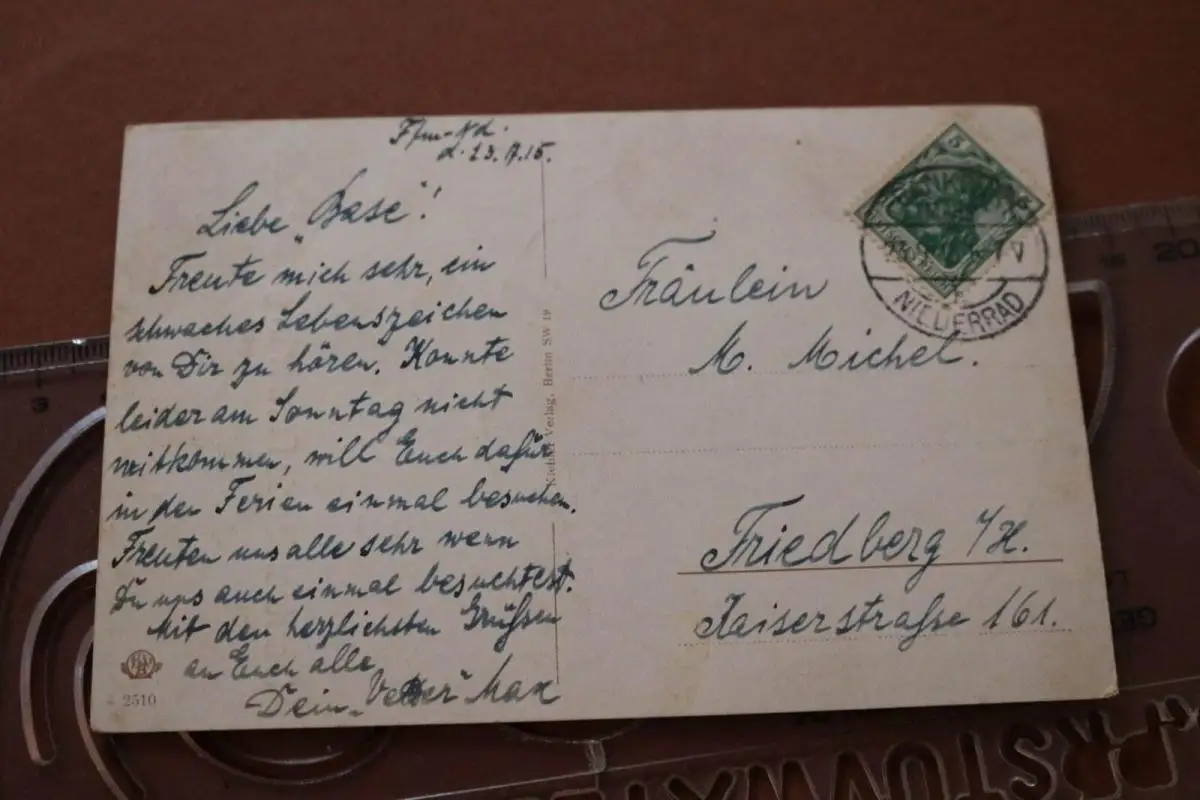 Ffm-Nd.
d. 23.
Liebe „Base“!
Freute mich sehr, ein
schwaches Lebenszeichen
von Dir zu hören. Konnte
leider am Sonntag nicht
mitkommen, will Euch dafür
in den Ferien einmal besuchen.
Freuten uns alle sehr wenn
Du uns auch einmal besuchtest.
Mit den herzlichsten Grüßen
an Euch alle
Dein „Vetter“ Max
2510
Verlag, Berlin SW 19
5
NIEDERRAD
Fräulein
M. Michel.
Friedberg i/H.
Kaiserstraße 161.
3
20